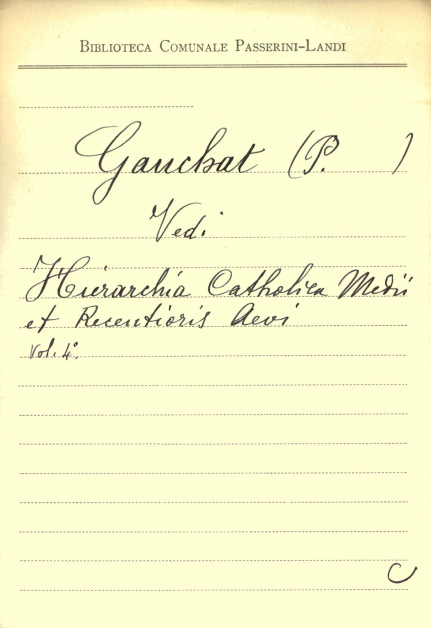 BIBLIOTECA COMUNALE PASSERINI-LANDI
Gauchat (P. )
Vedi
Hierarchia Catholica Medii
et Recentioris Aevi
Vol. 4°.
C